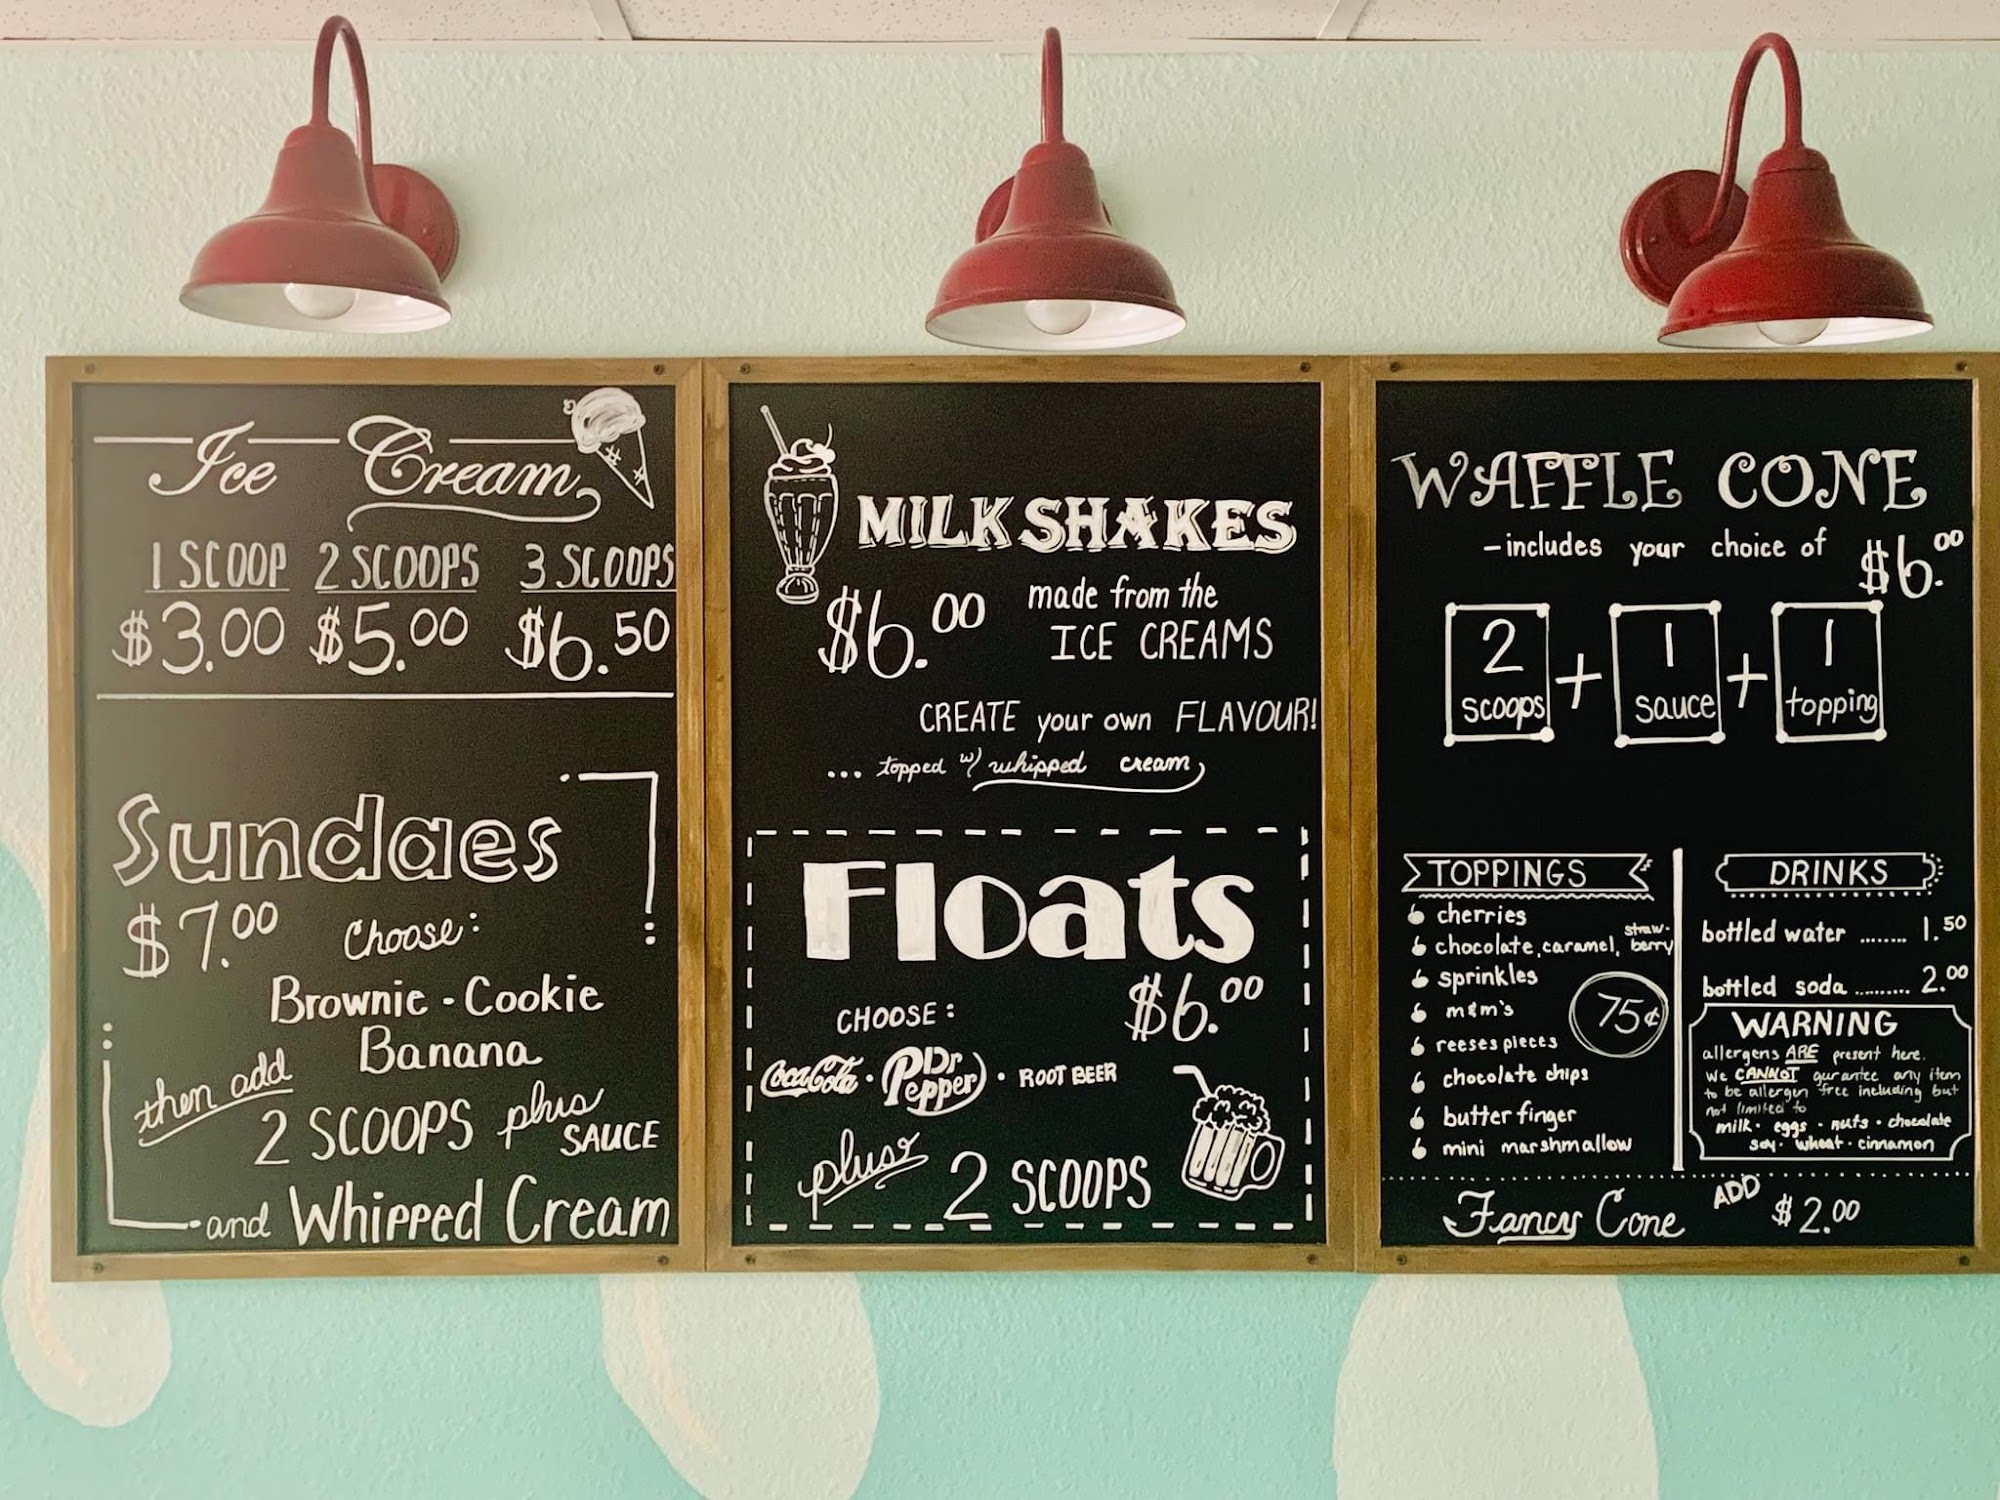 Ice Cream
1 SCOOP 2 SCOOPS 3 SCOOPS
$3.00 $5.00 $6.50
Sundaes
$7.00 Choose:
Brownie - Cookie
Banana
then add
2 SCOOPS plus
SAUCE
and Whipped Cream
MILKSHAKES
$6.00 made from the
ICE CREAMS
CREATE your own FLAVOUR!
... topped w/ whipped cream
Floats
$6.00
CHOOSE:
Coca Cola · Dr Pepper · ROOT BEER
plus 2 SCOOPS
WAFFLE CONE
-includes your choice of $6.00
2 + 1 + 1
scoops sauce topping
TOPPINGS
cherries
chocolate, caramel, straw-
berry
sprinkles
m&m's
75¢
reeses pieces
chocolate chips
butter finger
mini marshmallow
DRINKS
bottled water ........ 1.50
bottled soda ......... 2.00
WARNING
allergens ARE present here.
We CANNOT gurantee any item
to be allergen free including but
not limited to
milk · eggs · nuts · chocolate
soy · wheat · cinnamon
Fancy Cone ADD $2.00